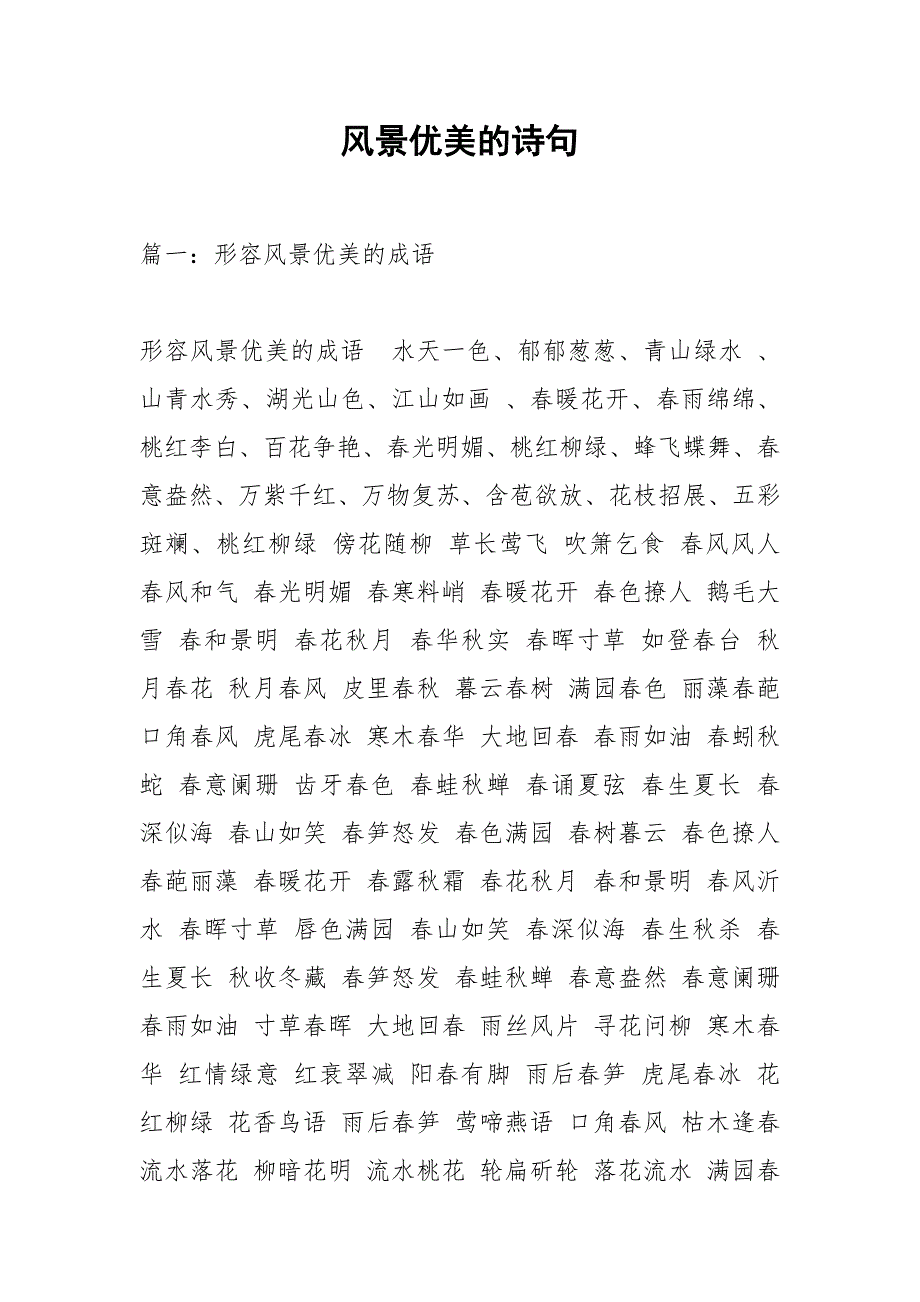 风景优美的诗句
篇一：形容风景优美的成语
形容风景优美的成语　水天一色、郁郁葱葱、青山绿水 、
山青水秀、湖光山色、江山如画 、春暖花开、春雨绵绵、
桃红李白、百花争艳、春光明媚、桃红柳绿、蜂飞蝶舞、春
意盎然、万紫千红、万物复苏、含苞欲放、花枝招展、五彩
斑斓、桃红柳绿 傍花随柳 草长莺飞 吹箫乞食 春风风人
春风和气 春光明媚 春寒料峭 春暖花开 春色撩人 鹅毛大
雪 春和景明 春花秋月 春华秋实 春晖寸草 如登春台 秋
月春花 秋月春风 皮里春秋 暮云春树 满园春色 丽藻春葩
口角春风 虎尾春冰 寒木春华 大地回春 春雨如油 春蚓秋
蛇 春意阑珊 齿牙春色 春蛙秋蝉 春诵夏弦 春生夏长 春
深似海 春山如笑 春笋怒发 春色满园 春树暮云 春色撩人
春葩丽藻 春暖花开 春露秋霜 春花秋月 春和景明 春风沂
水 春晖寸草 唇色满园 春山如笑 春深似海 春生秋杀 春
生夏长 秋收冬藏 春笋怒发 春蛙秋蝉 春意盎然 春意阑珊
春雨如油 寸草春晖 大地回春 雨丝风片 寻花问柳 寒木春
华 红情绿意 红衰翠减 阳春有脚 雨后春笋 虎尾春冰 花
红柳绿 花香鸟语 雨后春笋 莺啼燕语 口角春风 枯木逢春
流水落花 柳暗花明 流水桃花 轮扁斫轮 落花流水 满园春